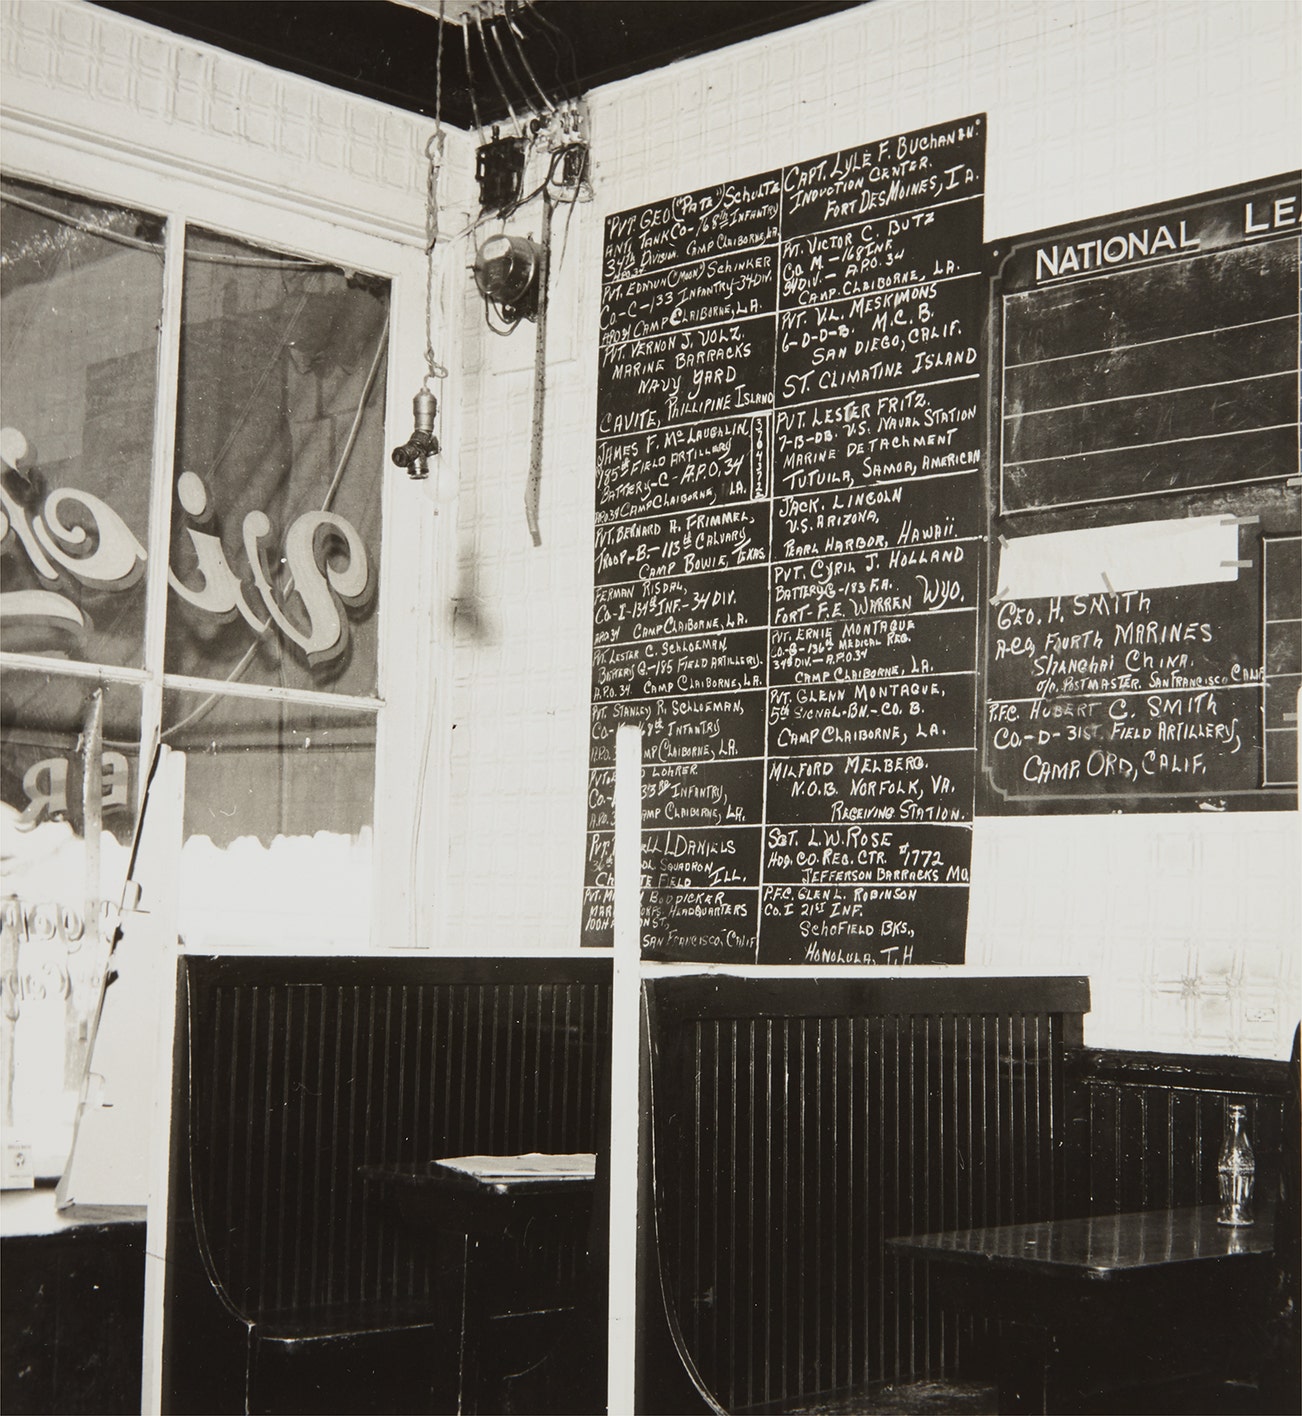 "PVT. GEO ("PATE") SCHULTZ
ANTI TANK CO-168TH INFANTRY
34TH DIVISION CAMP CLAIBORNE, LA.
A.P.O. 34
PVT. EDNUN (MOON) SCHINKER
CO-C-133 INFANTRY-34DIV.
A.P.O 34 CAMP CLAIBORNE, LA.
PVT. VERNON J. VOLZ.
MARINE BARRACKS
NAVY YARD
CAVITE, PHILLIPINE ISLAND
JAMES F. McLAUGHLIN
185TH FIELD ARTILLERY
BATTERY-C- A.P.O. 34
A.P.O 34 CAMP CLAIBORNE, LA.
PVT. BERNARD A. FRIMMEL,
TROOP-B.-113TH CALVARY
CAMP BOWIE, TEXAS
FERMAN RISDAL,
CO-I-134TH INF.-34 DIV.
A.P.O 34 CAMP CLAIBORNE, LA.
PVT. LESTER C. SCHLOEMAN
BATTERY G-185 FIELD ARTILLERY.
A.P.O. 34. CAMP CLAIBORNE, LA.
PVT. STANLEY R. SCHLOEMAN,
CO- 168TH INFANTRY
A.P.O. 3 MP CLAIBORNE, LA.
PVT. D LOHRER
CO.- 33RD INFANTRY,
A.P.O. 3 AMP CLAIBORNE, LA.
PVT. ELL L DANIELS
36TH OL SQUADRON
CH TE FIELD ILL.
PVT. M BODDICKER
MAR CORPS. HEADQUARTERS
100 H ON ST.,
SAN FRANCISCO, CALIF
CAPT. LYLE F. BUCHANAN."
INDUCTION CENTER.
FORT DES MOINES, IA.
PVT. VICTOR C. BUTZ
CO. M.-168 INF.
34 DIV.- A.P.O. 34
CAMP. CLAIBORNE, LA.
PVT. V.L. MESKIMONS
6-D-D-B. M.C.B.
SAN DIEGO, CALIF.
ST. CLIMATINE ISLAND
PVT. LESTER FRITZ.
7-13-DB. U.S. NAVAL STATION
MARINE DETACHMENT
TUTUILA, SAMOA, AMERICAN
JACK. LINCOLN
U.S. ARIZONA,
PEARL HARBOR, HAWAII.
PVT. CYRIL J. HOLLAND
BATTERY G-183 F.A.
FORT-F.E. WARREN WYO.
PVT. ERNIE MONTAGUE
CO.-B-136TH MEDICAL REG.
34TH DIV.-A.P.O 34
CAMP CLAIBORNE, LA.
PVT. GLENN MONTAGUE,
5TH SIGNAL-BN.-CO. B.
CAMP CLAIBORNE, LA.
MILFORD MELBERG.
N.O.B. NORFOLK, VA.
RECEIVING STATION.
SGT. L.W. ROSE
HDQ. CO. REC. CTR. #1772
JEFFERSON BARRACKS MO.
P.F.C. GLEN L. ROBINSON
CO. I 21ST INF.
SCHOFIELD BKS.,
HONOLULA, T.H
NATIONAL LEA
GEO. H. SMITH
A-CO, FOURTH MARINES
SHANGHAI CHINA.
O/O. POSTMASTER. SAN FRANCISCO CALIF
P.F.C. HUBERT C. SMITH
CO.-D-31ST. FIELD ARTILLERY,
CAMP. ORD, CALIF.